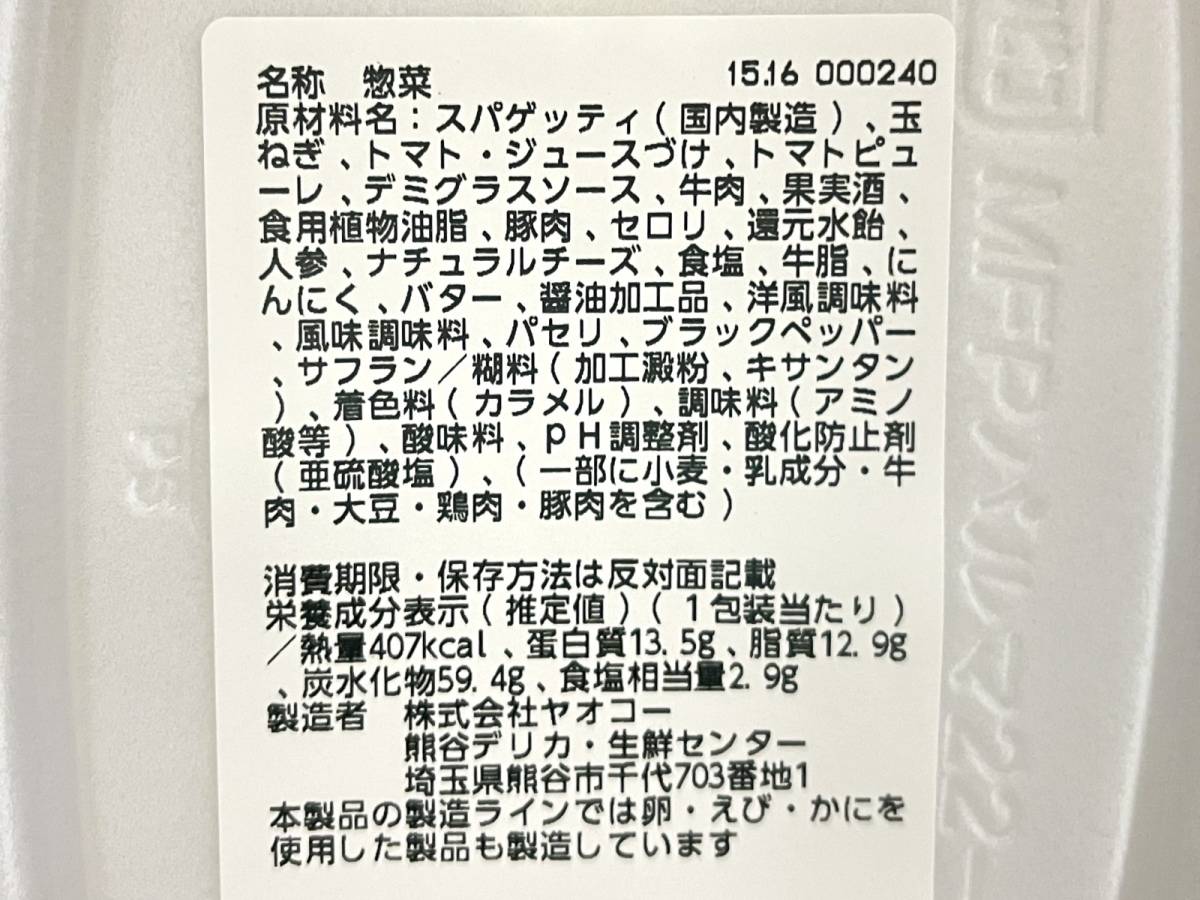 名称　惣菜
15.16 000240
原材料名：スパゲッティ（国内製造）、玉
ねぎ、トマト・ジュースづけ、トマトピュ
ーレ、デミグラスソース、牛肉、果実酒、
食用植物油脂、豚肉、セロリ、還元水飴、
人参、ナチュラルチーズ、食塩、牛脂、に
んにく、バター、醤油加工品、洋風調味料
、風味調味料、パセリ、ブラックペッパー
、サフラン／糊料（加工澱粉、キサンタン
）、着色料（カラメル）、調味料（アミノ
酸等）、酸味料、pH調整剤、酸化防止剤
（亜硫酸塩）、（一部に小麦・乳成分・牛
肉・大豆・鶏肉・豚肉を含む）
消費期限・保存方法は反対面記載
栄養成分表示（推定値）（１包装当たり）
／熱量407kcal、蛋白質13.5g、脂質12.9g
、炭水化物59.4g、食塩相当量2.9g
製造者　株式会社ヤオコー
熊谷デリカ・生鮮センター
埼玉県熊谷市千代703番地1
本製品の製造ラインでは卵・えび・かにを
使用した製品も製造しています
PS